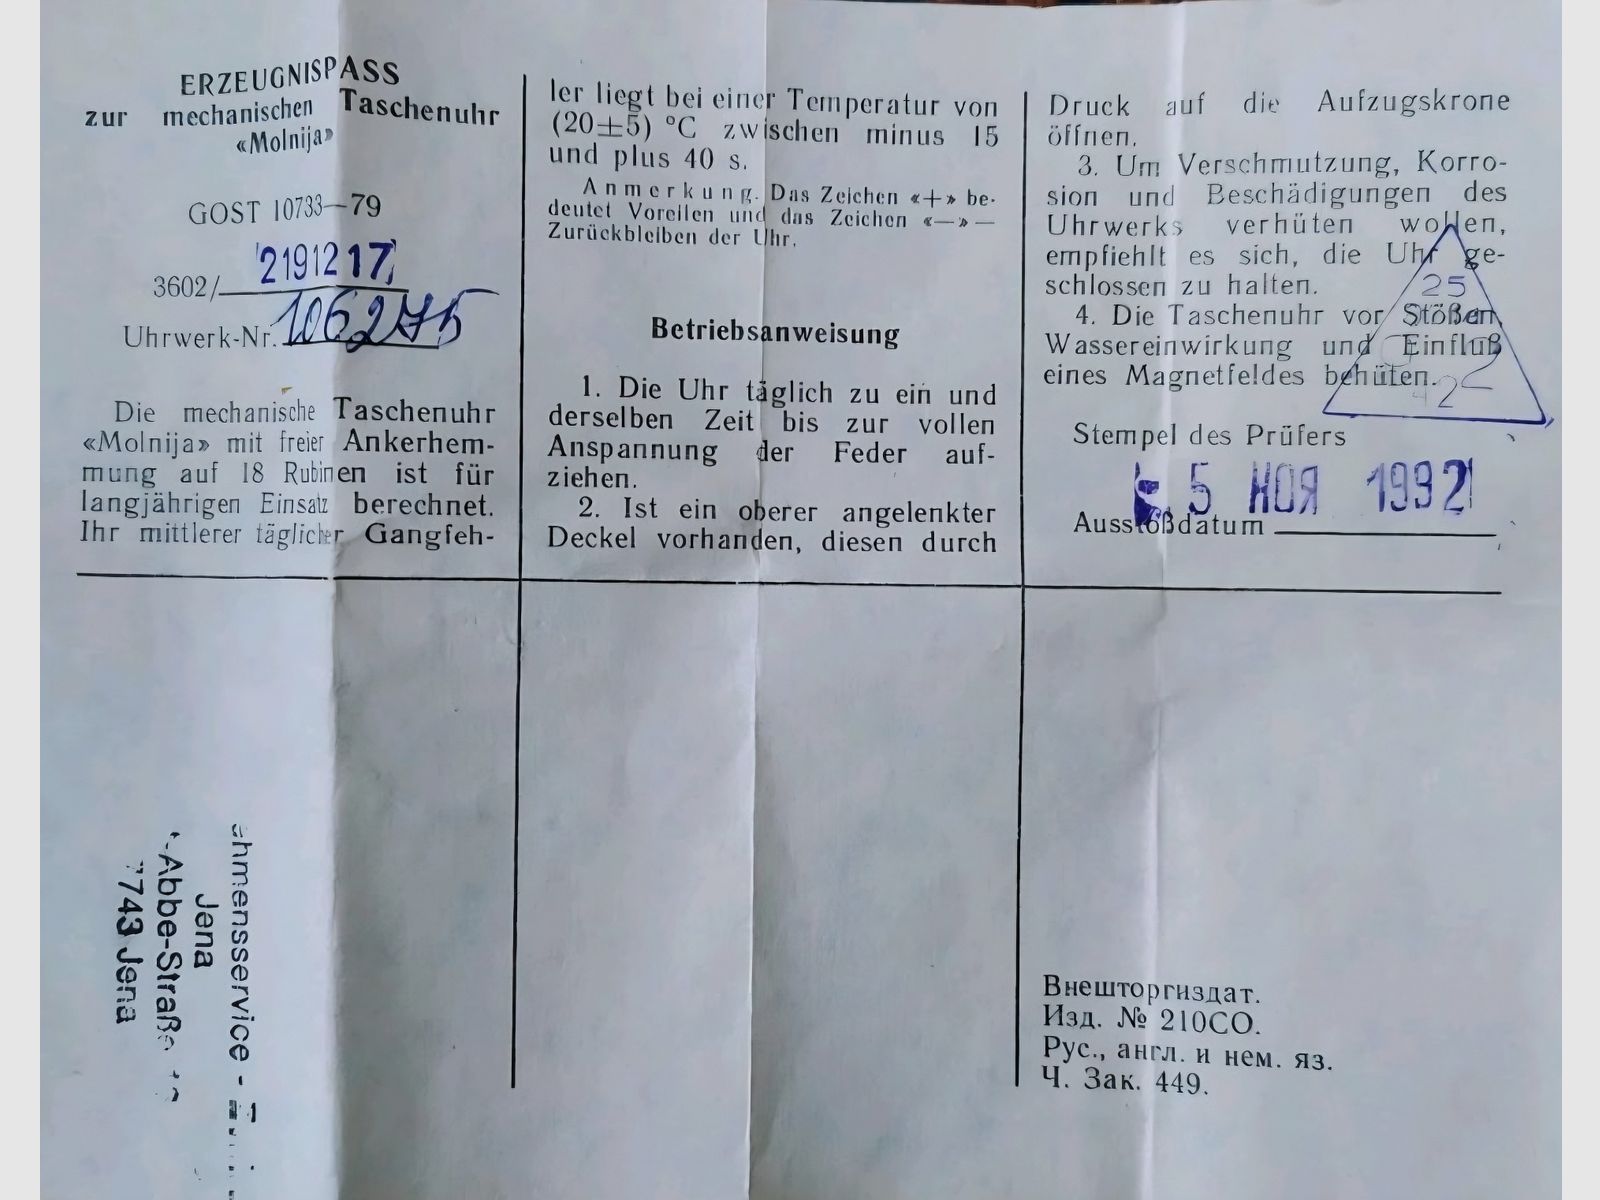 ERZEUGNISPASS
zur mechanischen Taschenuhr
«Molnija»
GOST 10733—79
3602/ 2191217
Uhrwerk-Nr. 106275
Die mechanische Taschenuhr
«Molnija» mit freier Ankerhem-
mung auf 18 Rubinen ist für
langjährigen Einsatz berechnet.
Ihr mittlerer täglicher Gangfeh-
ler liegt bei einer Temperatur von
(20±5) °C zwischen minus 15
und plus 40 s.
Anmerkung. Das Zeichen «+» be-
deutet Voreilen und das Zeichen «—» —
Zurückbleiben der Uhr.
Betriebsanweisung
1. Die Uhr täglich zu ein und
derselben Zeit bis zur vollen
Anspannung der Feder auf-
ziehen.
2. Ist ein oberer angelenkter
Deckel vorhanden, diesen durch
Druck auf die Aufzugskrone
öffnen.
3. Um Verschmutzung, Korro-
sion und Beschädigungen des
Uhrwerks verhüten wollen,
empfiehlt es sich, die Uhr ge-
schlossen zu halten.
25
4. Die Taschenuhr vor Stößen,
Wassereinwirkung und Einfluß
eines Magnetfeldes behüten.
Stempel des Prüfers
5 НОЯ 1992
Ausstoßdatum
Jena
-Abbe-Straße
743 Jena
Внешторгиздат.
Изд. № 210СО.
Рус., англ. и нем. яз.
Ч. Зак. 449.